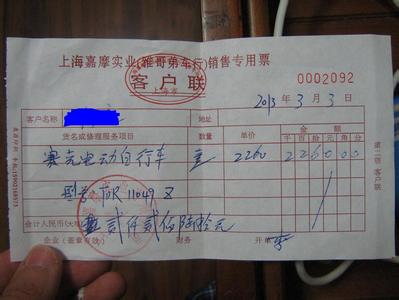 上海嘉摩实业(雅哥弟车行)销售专用票
客户联
上海市
0002092
2013年3月3日
客户名称
地址
货名或修理服务项目 数量 单价 金额
千 百 拾 元 角 分
赛克电动自行车 2260 2 2 6 0 0 0
型号: 11049
合计人民币(大写) 贰仟贰佰陆拾元
企业(盖章有效) 财务 开单
第二联 客户联